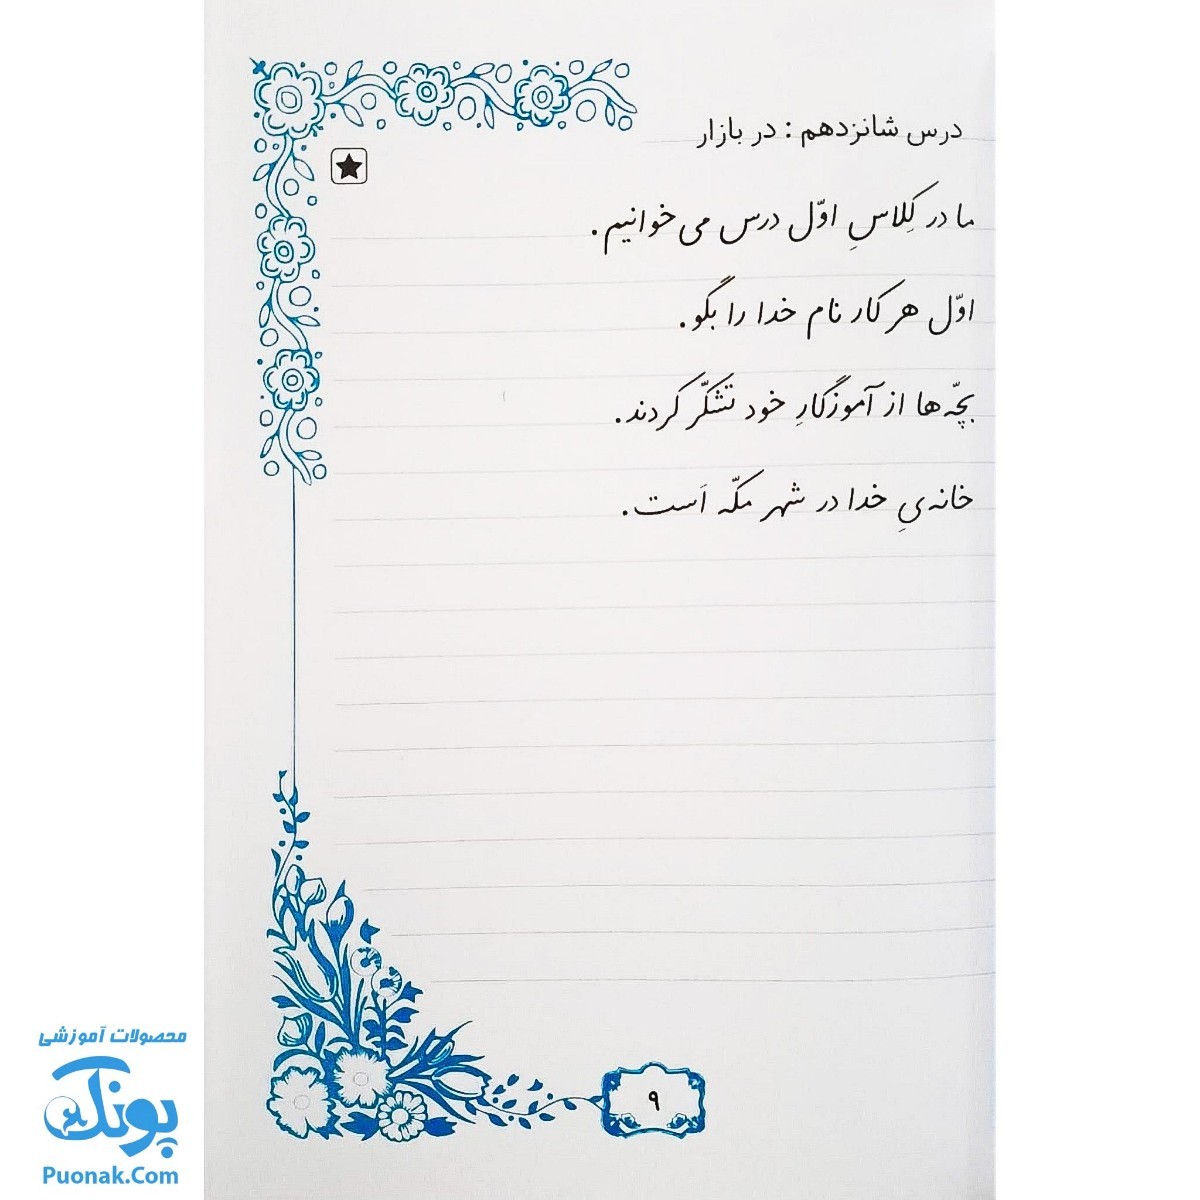 درس شانزدهم : در بازار
ما در کِلاسِ اوّل درس می‌خوانیم.
اوّل هر کار نام خدا را بگو.
بچّه‌ها از آموزگارِ خود تشکّر کردند.
خانه‌یِ خدا در شهر مکّه اَست.
۹
محصولات آموزشی
پونک
Puonak.Com